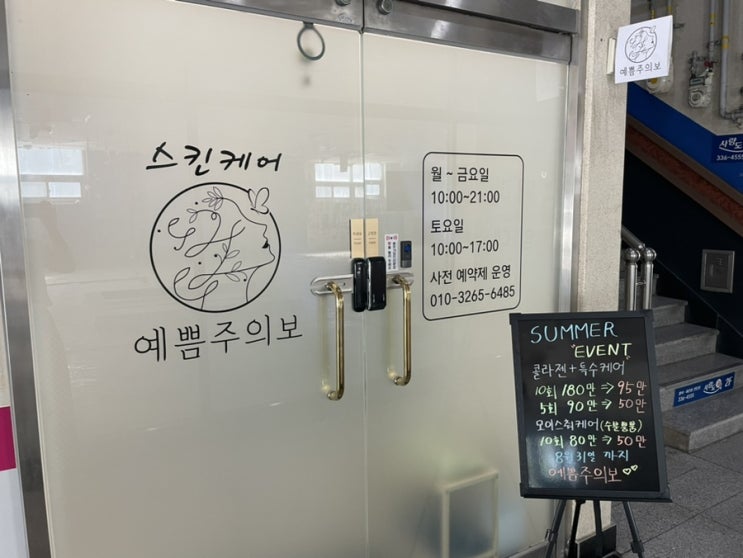 스킨케어
예쁨주의보
월 ~ 금요일
10:00~21:00
토요일
10:00~17:00
사전 예약제 운영
010-3265-6485
예쁨주의보
336-4555
SUMMER
EVENT
콜라겐+특수케어
10회 180만⇒95만
5회 90만⇒50만
모이스춰케어(수분뿜뿜)
10회 80만⇒50만
8月31일 까지
예쁨주의보
336-4555